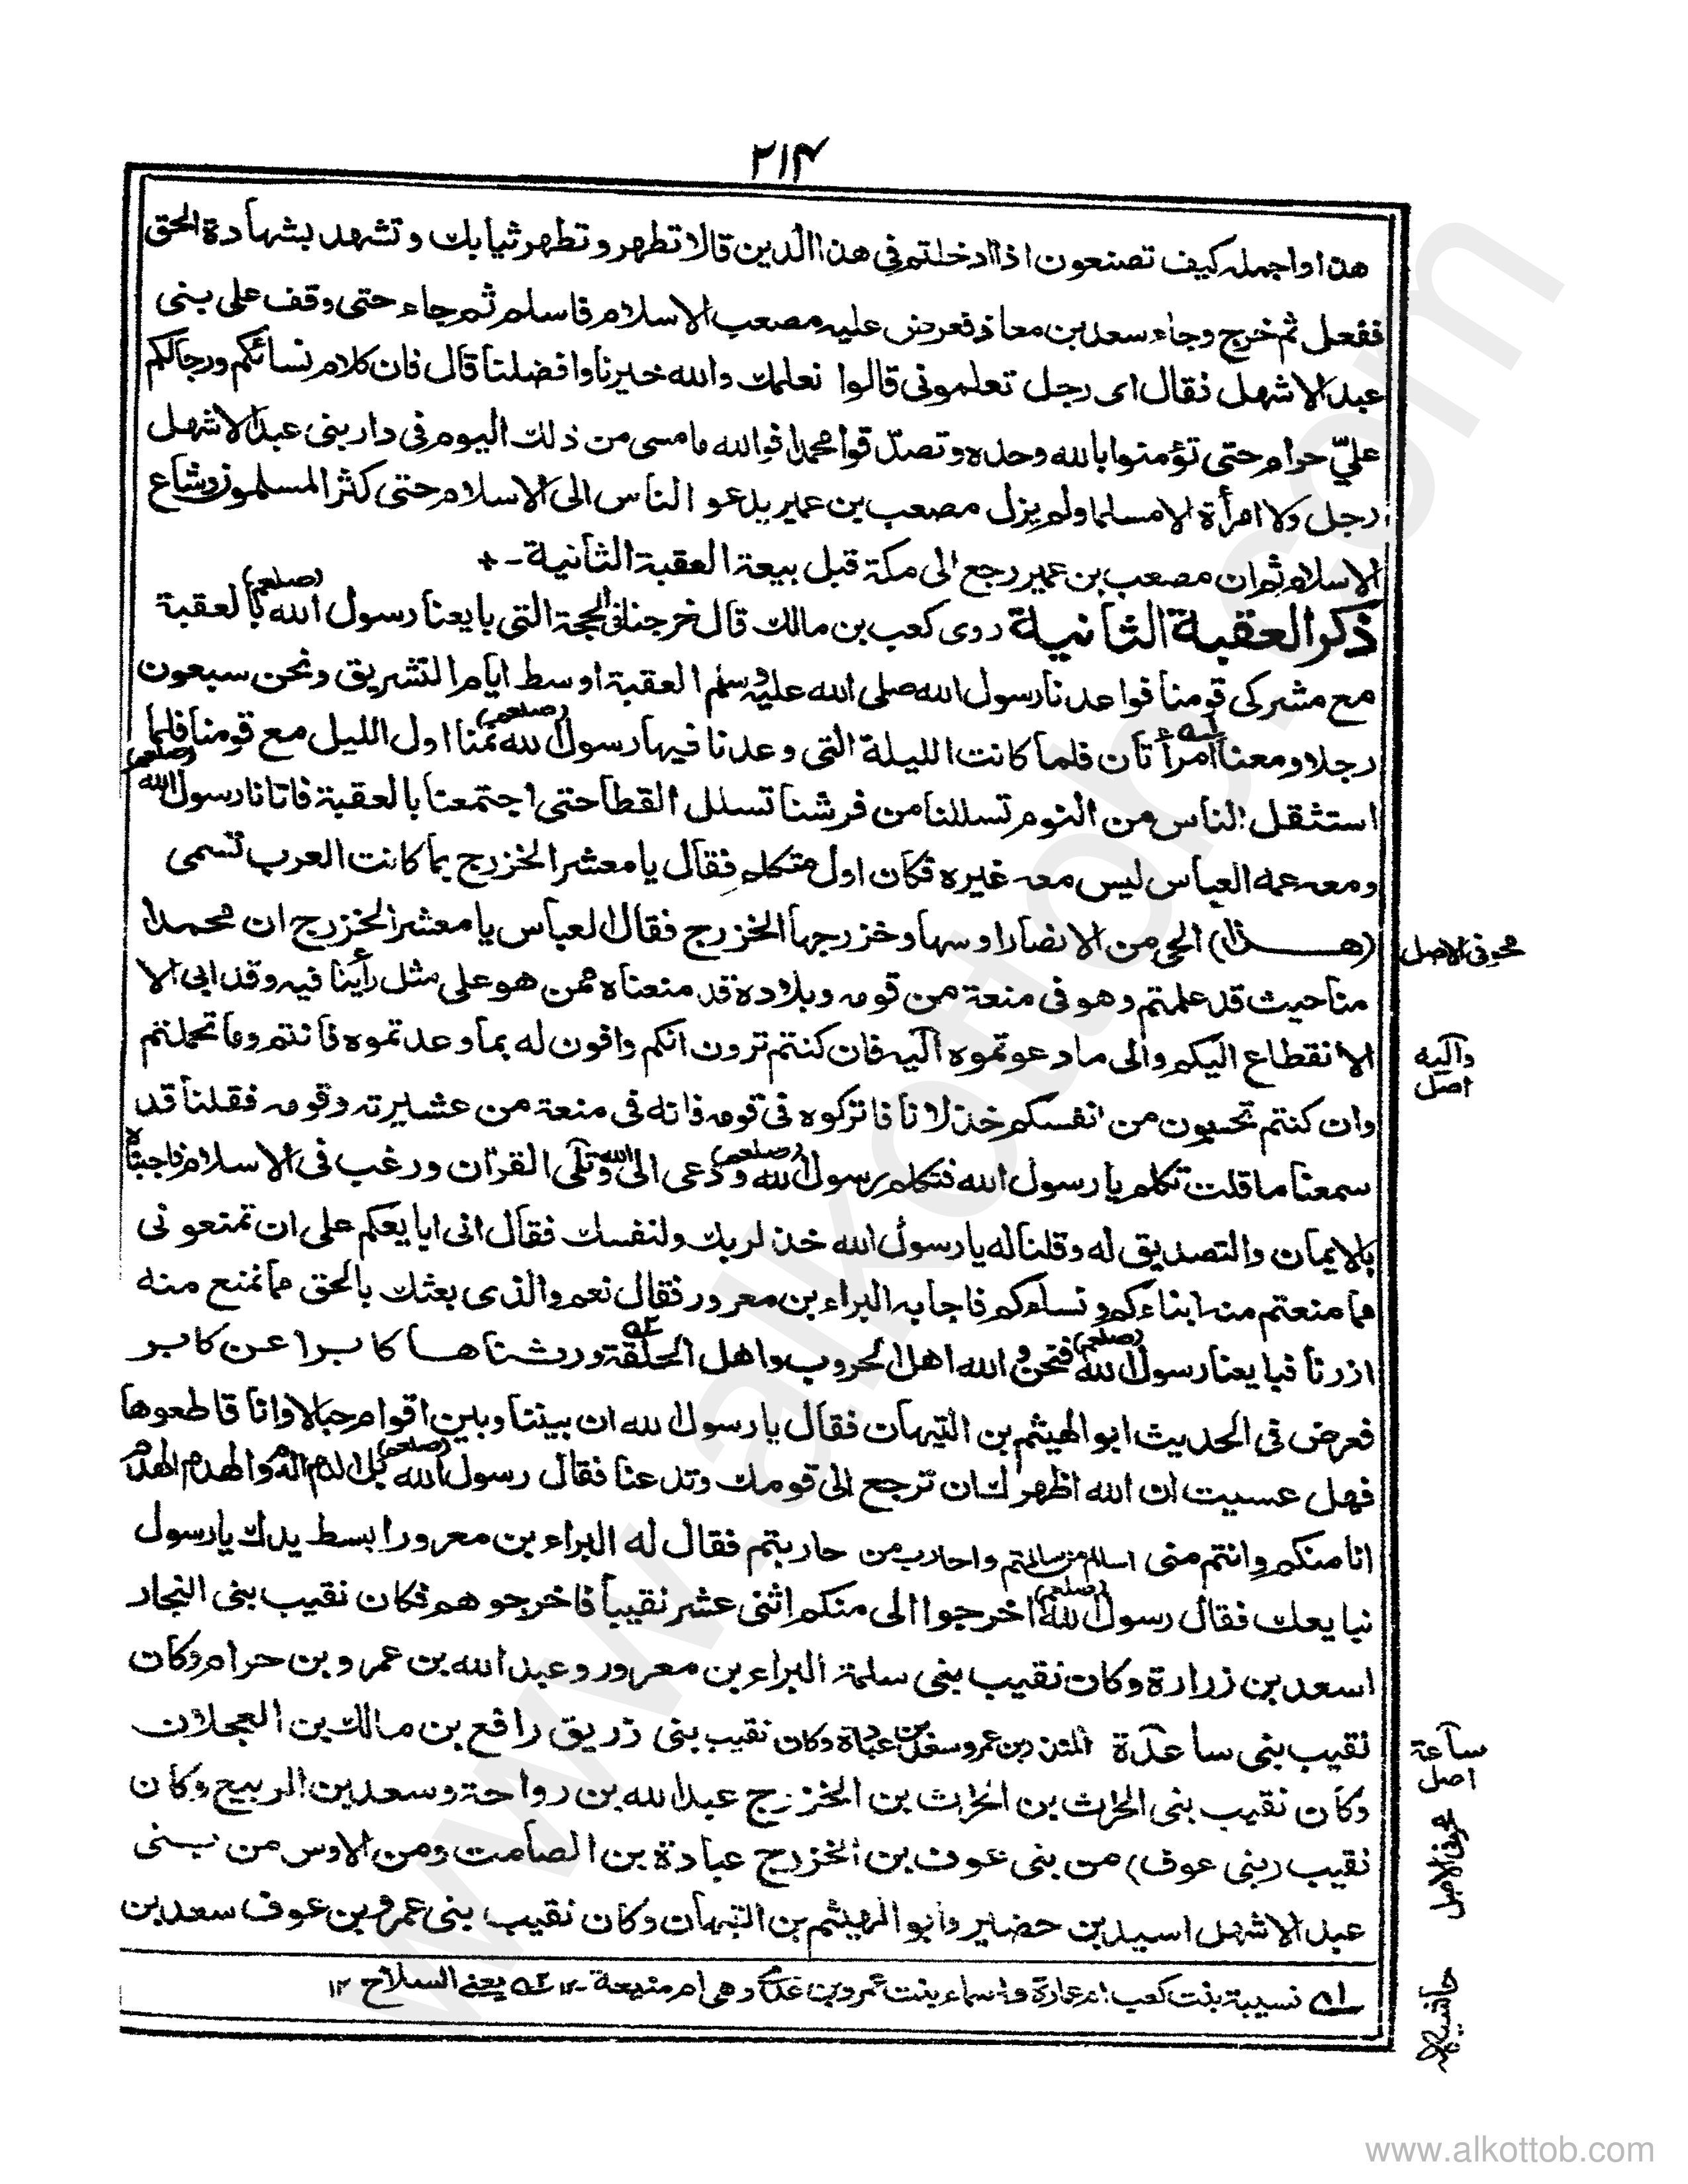 ۲۱۴
هذا واجمله كيف تصنعون اذا ادخلتم فى هذا الدين قالا تطهر وتطهر ثيابك وتشهد بشهادة الحق
ففعل ثم خرج وجاء سعد بن معاذ فعرض عليه مصعب الاسلام فاسلم ثم جاء حتى وقف على بنى
عبد الاشهل فقال اى رجل تعلمونى قالوا نعلمك والله خيرنا وافضلنا قال فان كلام نسائكم ورجالكم
علىّ حرام حتى تؤمنوا بالله وحده وتصدّقوا محمدا فوالله ما مسى من ذلك اليوم فى دار بنى عبد الاشهل
رجل ولا امرأة الا مسلما ولم يزل مصعب بن عمير يدعو الناس الى الاسلام حتى كثر المسلمون وشاع
الاسلام ثم ان مصعب بن عمير رجع الى مكة قبل بيعة العقبة الثانية - +
ذكر العقبة الثانية روى كعب بن مالك قال خرجنا فى الحجة التى بايعنا رسول الله (صلعم) بالعقبة
مع مشركى قومنا فواعدنا رسول الله صلى الله عليه وسلم العقبة اوسط ايام التشريق ونحن سبعون
رجلا ومعنا امرأتان ۱ه فلما كانت الليلة التى وعدنا فيها رسول الله (صلعم) نمنا اول الليل مع قومنا فلما
استثقل الناس من النوم تسللنا من فرشنا تسلل القطا حتى اجتمعنا بالعقبة فاتانا رسول الله (صلعم)
ومعه عمه العباس ليس معه غيره فكان اول متكلم فقال يا معشر الخزرج بما كانت العرب تسمى
(هـــذا) الحى من الانصار اوسها وخزرجها الخزرج فقال العباس يا معشر الخزرج ان محمدا
محو فى الاصل
منا حيث قد علمتم وهو فى منعة من قومه وبلاده قد منعناه ممن هو على مثل رأينا فيه وقد ابى الا
الانقطاع اليكم والى ما دعوتموه اليه فان كنتم ترون انكم وافون له بما وعدتموه فانتم وما تحملتم
واليه
اصل
وان كنتم تحسبون من انفسكم خذلانا فاتركوه فى قومه فانه فى منعة من عشيرته وقومه فقلنا قد
سمعنا ما قلت تكلم يا رسول الله فتكلم رسول الله (صلعم) ودعى الى الله وتلى القرآن ورغب فى الاسلام فاجبناه
بالايمان والتصديق له وقلنا له يا رسول الله خذ لربك ولنفسك فقال انى ابايعكم على ان تمنعونى
مما منعتم منه ابناءكم ونساءكم فاجابه البراء بن معرور فقال نعم والذى بعثك بالحق مما نمنع منه
ازرنا فبايعنا رسول الله (صلعم) فنحن والله اهل الحروب واهل الحلقة ۲ه ورثناها كابرا عن كابر
فعرض فى الحديث ابو الهيثم بن التيهان فقال يا رسول الله ان بيننا وبين اقوام حبالا وانا قاطعوها
فهل عسيت ان الله اظهرك ان ترجع الى قومك وتدعنا فقال رسول الله (صلعم) بل الدم الدم والهدم الهدم
انا منكم وانتم منى اسالم من سالمتم واحارب من حاربتم فقال له البراء بن معرور ابسط يدك يا رسول
نبايعك فقال رسول الله (صلعم) اخرجوا الى منكم اثنى عشر نقيبا فاخرجوهم فكان نقيب بنى النجار
اسعد بن زرارة وكان نقيب بنى سلمة البراء بن معرور وعبد الله بن عمرو بن حرام وكان
نقيب بنى ساعدة المنذر بن عمرو وسعد بن عبادة وكان نقيب بنى زريق رافع بن مالك بن العجلان
ساعة
اصل
وكان نقيب بنى الحرث بن الحرث بن الخزرج عبد الله بن رواحة وسعد بن الربيع وكان
نقيب (بنى عوف) من بنى عوف بن الخزرج عبادة بن الصامت ومن الاوس من بنى
محو فى الاصل
عبد الاشهل اسيد بن حضير وابو الهيثم بن التيهان وكان نقيب بنى عمرو بن عوف سعد بن
۱ه نسيبة بنت كعب ام عمارة واسماء بنت عمرو بن عدى وهى ام منيعة - ۱۲ ۲ه يعنى السلاح ۱۲
حاشيه
www.alkottob.com
www.alkottob.com